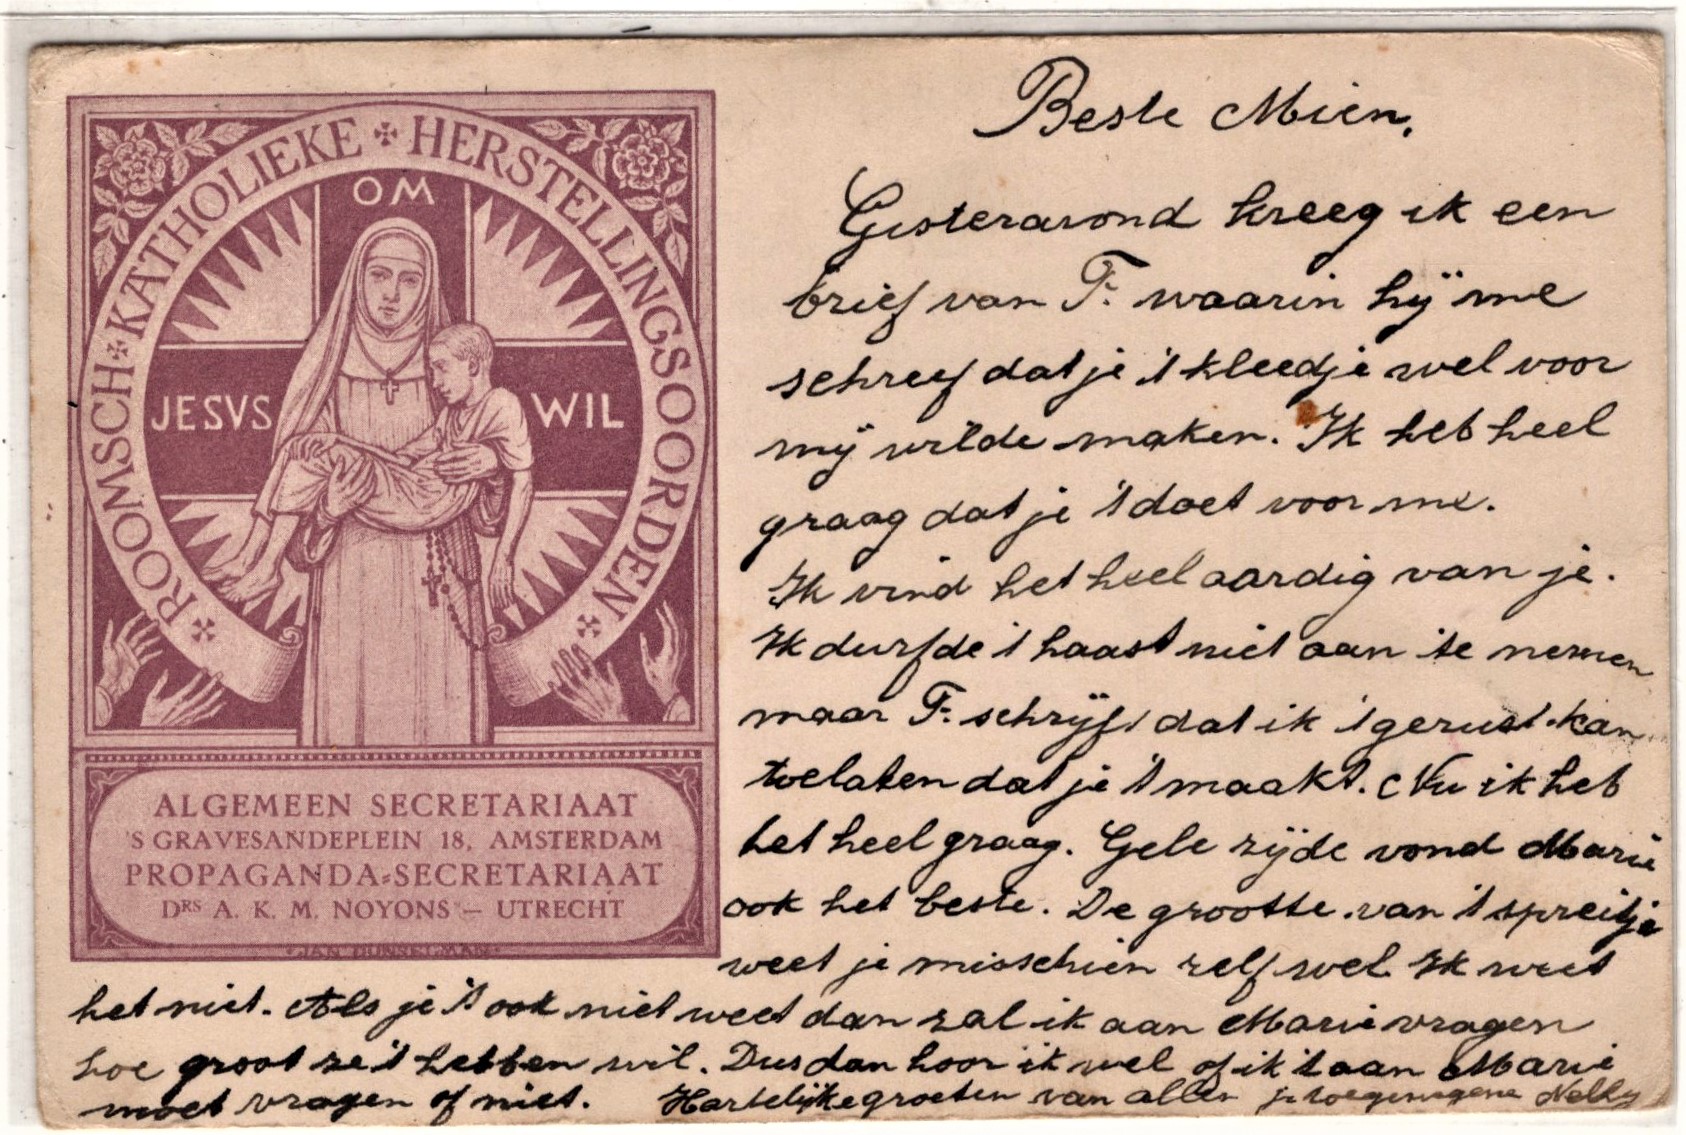 ROOMSCH ✠ KATHOLIEKE ✠ HERSTELLINGSOORDEN
OM
JESVS WIL
ALGEMEEN SECRETARIAAT
'S GRAVESANDEPLEIN 18, AMSTERDAM
PROPAGANDA=SECRETARIAAT
DRS A. K. M. NOYONS – UTRECHT
·JAN DUNSELMAN·
Beste Mien,
Gisteravond kreeg ik een
brief van F. waarin hij me
schreef dat je 't kleedje wel voor
mij wilde maken. Ik heb heel
graag dat je 't doet voor me.
Ik vind het heel aardig van je.
Ik durfde 't haast niet aan te nemen
maar F. schrijft dat ik 't gerust kan
toelaten dat je 't maakt. Nu ik heb
het heel graag. Gele zijde vond Marie
ook het beste. De grootte van 't spreitje
weet je misschien zelf wel Ik weet
het niet. Als je 't ook niet weet dan zal ik aan Marie vragen
hoe groot ze 't hebben wil. Dus dan hoor ik wel of ik 't aan Marie
moet vragen of niet. Hartelijke groeten van allen je toegenegene Nelly